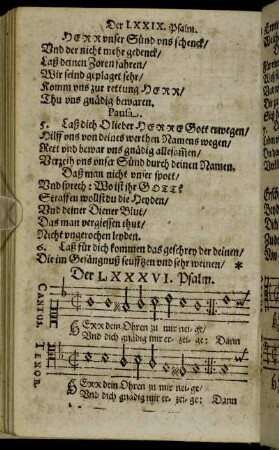 Der LXXIX. Psalm.
HERR vnser Sünd vns schenck/
Vnd der nicht mehr gedenck/
Laß deinen Zoren fahren/
Wir seind geplaget sehr/
Komm vns zur rettung HERR/
Thu vns gnädig bewaren.
Pausa.
5. Laß dich O lieber HERRE Gott erwegen/
Hilff vns von deines werthen Namens wegen/
Rett vnd bewar vns gnädig allesamen/
Verzeih vns vnser Sünd durch deinen Namen.
Daß man nicht vnser spott/
Vnd sprech: Wo ist ihr GOTT?
Straffen wollst du die Heyden/
Vnd deiner Diener Blut/
Das man vergiessen thut/
Nicht vngerochen leyden.
6. Laß für dich kommen das geschrey der deinen/
Die im Gefängnuß seufftzen vnd sehr weinen/ *
Der LXXXVI. Psalm.
CANTUS.
HERR dein Ohren zu mir nei-ge/
Vnd dich gnädig mir er-zei-ge: Dann
TENOR.
HERR dein Ohren zu mir nei-ge/
Vnd dich gnädig mir er-zei-ge: Dann